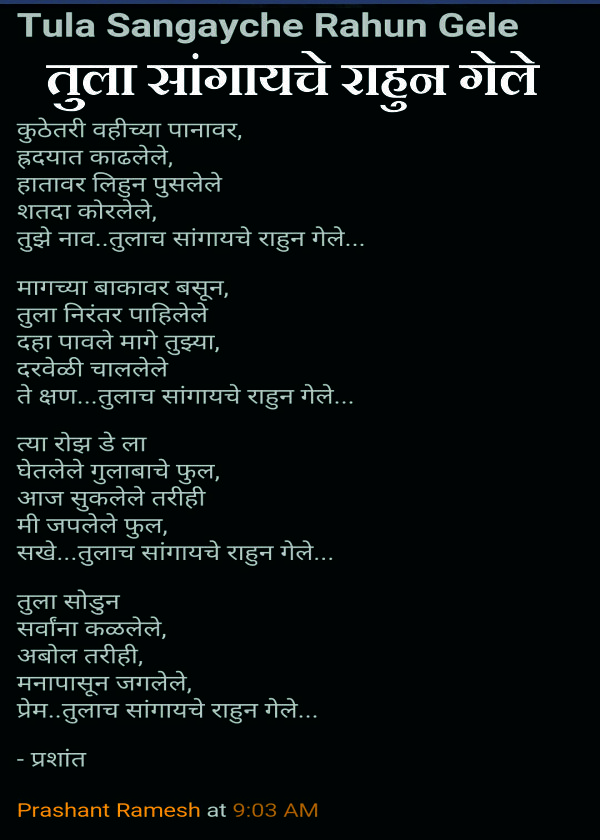 Tula Sangayche Rahun Gele
तुला सांगायचे राहुन गेले
कुठेतरी वहीच्या पानावर,
ह्रदयात काढलेले,
हातावर लिहुन पुसलेले
शतदा कोरलेले,
तुझे नाव..तुलाच सांगायचे राहुन गेले...
मागच्या बाकावर बसून,
तुला निरंतर पाहिलेले
दहा पावले मागे तुझ्या,
दरवेळी चाललेले
ते क्षण...तुलाच सांगायचे राहुन गेले...
त्या रोझ डे ला
घेतलेले गुलाबाचे फुल,
आज सुकलेले तरीही
मी जपलेले फुल,
सखे...तुलाच सांगायचे राहुन गेले...
तुला सोडुन
सर्वांना कळलेले,
अबोल तरीही,
मनापासून जगलेले,
प्रेम..तुलाच सांगायचे राहुन गेले...
- प्रशांत
Prashant Ramesh at 9:03 AM